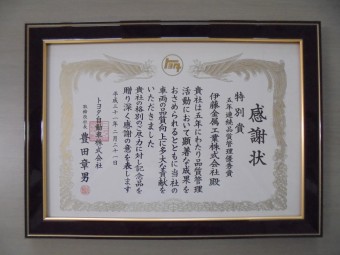 トヨタ
感謝状
特別賞
五年連続品質管理優秀賞
伊藤金属工業株式会社殿
貴社は五年にわたり品質管理
活動において顕著な成果を
おさめられるとともに当社の
車両の品質向上に多大な貢献を
いただきました
貴社の格別のご尽力に対し記念品を
贈り深く感謝の意を表します
平成二十一年二月二十一日
トヨタ自動車株式会社
豊田章男